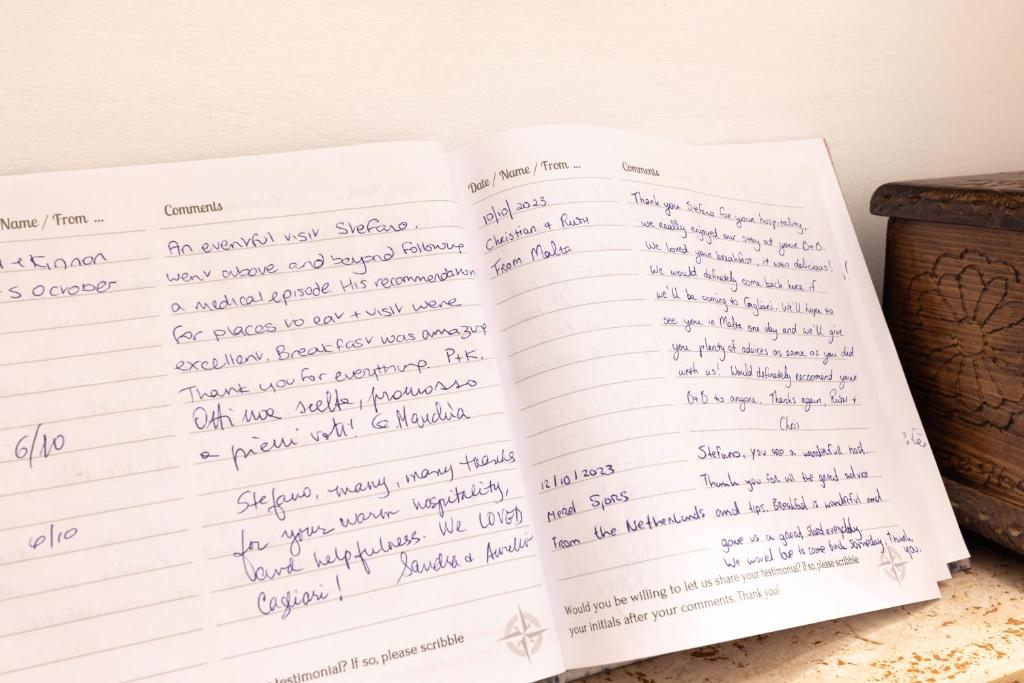 Name / From ...
Comments
Kinnon
5 October
An eventful visit Stefano.
went above and beyond following
a medical episode His recommendation
for places to eat + visit were
excellent. Breakfast was amazing
Thank you for everything. P+K.
6/10
Ottima scelta, promosso
a pieni voti!
6/10
Stefano, many, many thanks
for your warm hospitality,
and helpfulness. We LOVED
Cagliari! Sandra & Aurelio
testimonial? If so, please scribble
Date / Name / From ...
Comments
10/10/2023
Christian & Ruth
From Malta
Thank you Stefano for your hospitality,
we really enjoyed our stay at your B+B.
We loved your breakfast, it was delicious!
We would definitely come back here if
we'll be coming to Cagliari. We'll hope to
see you in Malta one day and we'll give
you plenty of advices as same as you did
with us! Would definately recommend your
B+B to anyone. Thanks again, Ruth +
Chris
12/10/2023
Merel Spons
From the Netherlands
Stefano, you are a wonderfull host.
Thank you for all the good advice
and tips. Breakfast is wonderful and
gave us a good start everyday.
We would love to come back someday, thank
you.
Would you be willing to let us share your testimonial? If so, please scribble
your initials after your comments. Thank you!